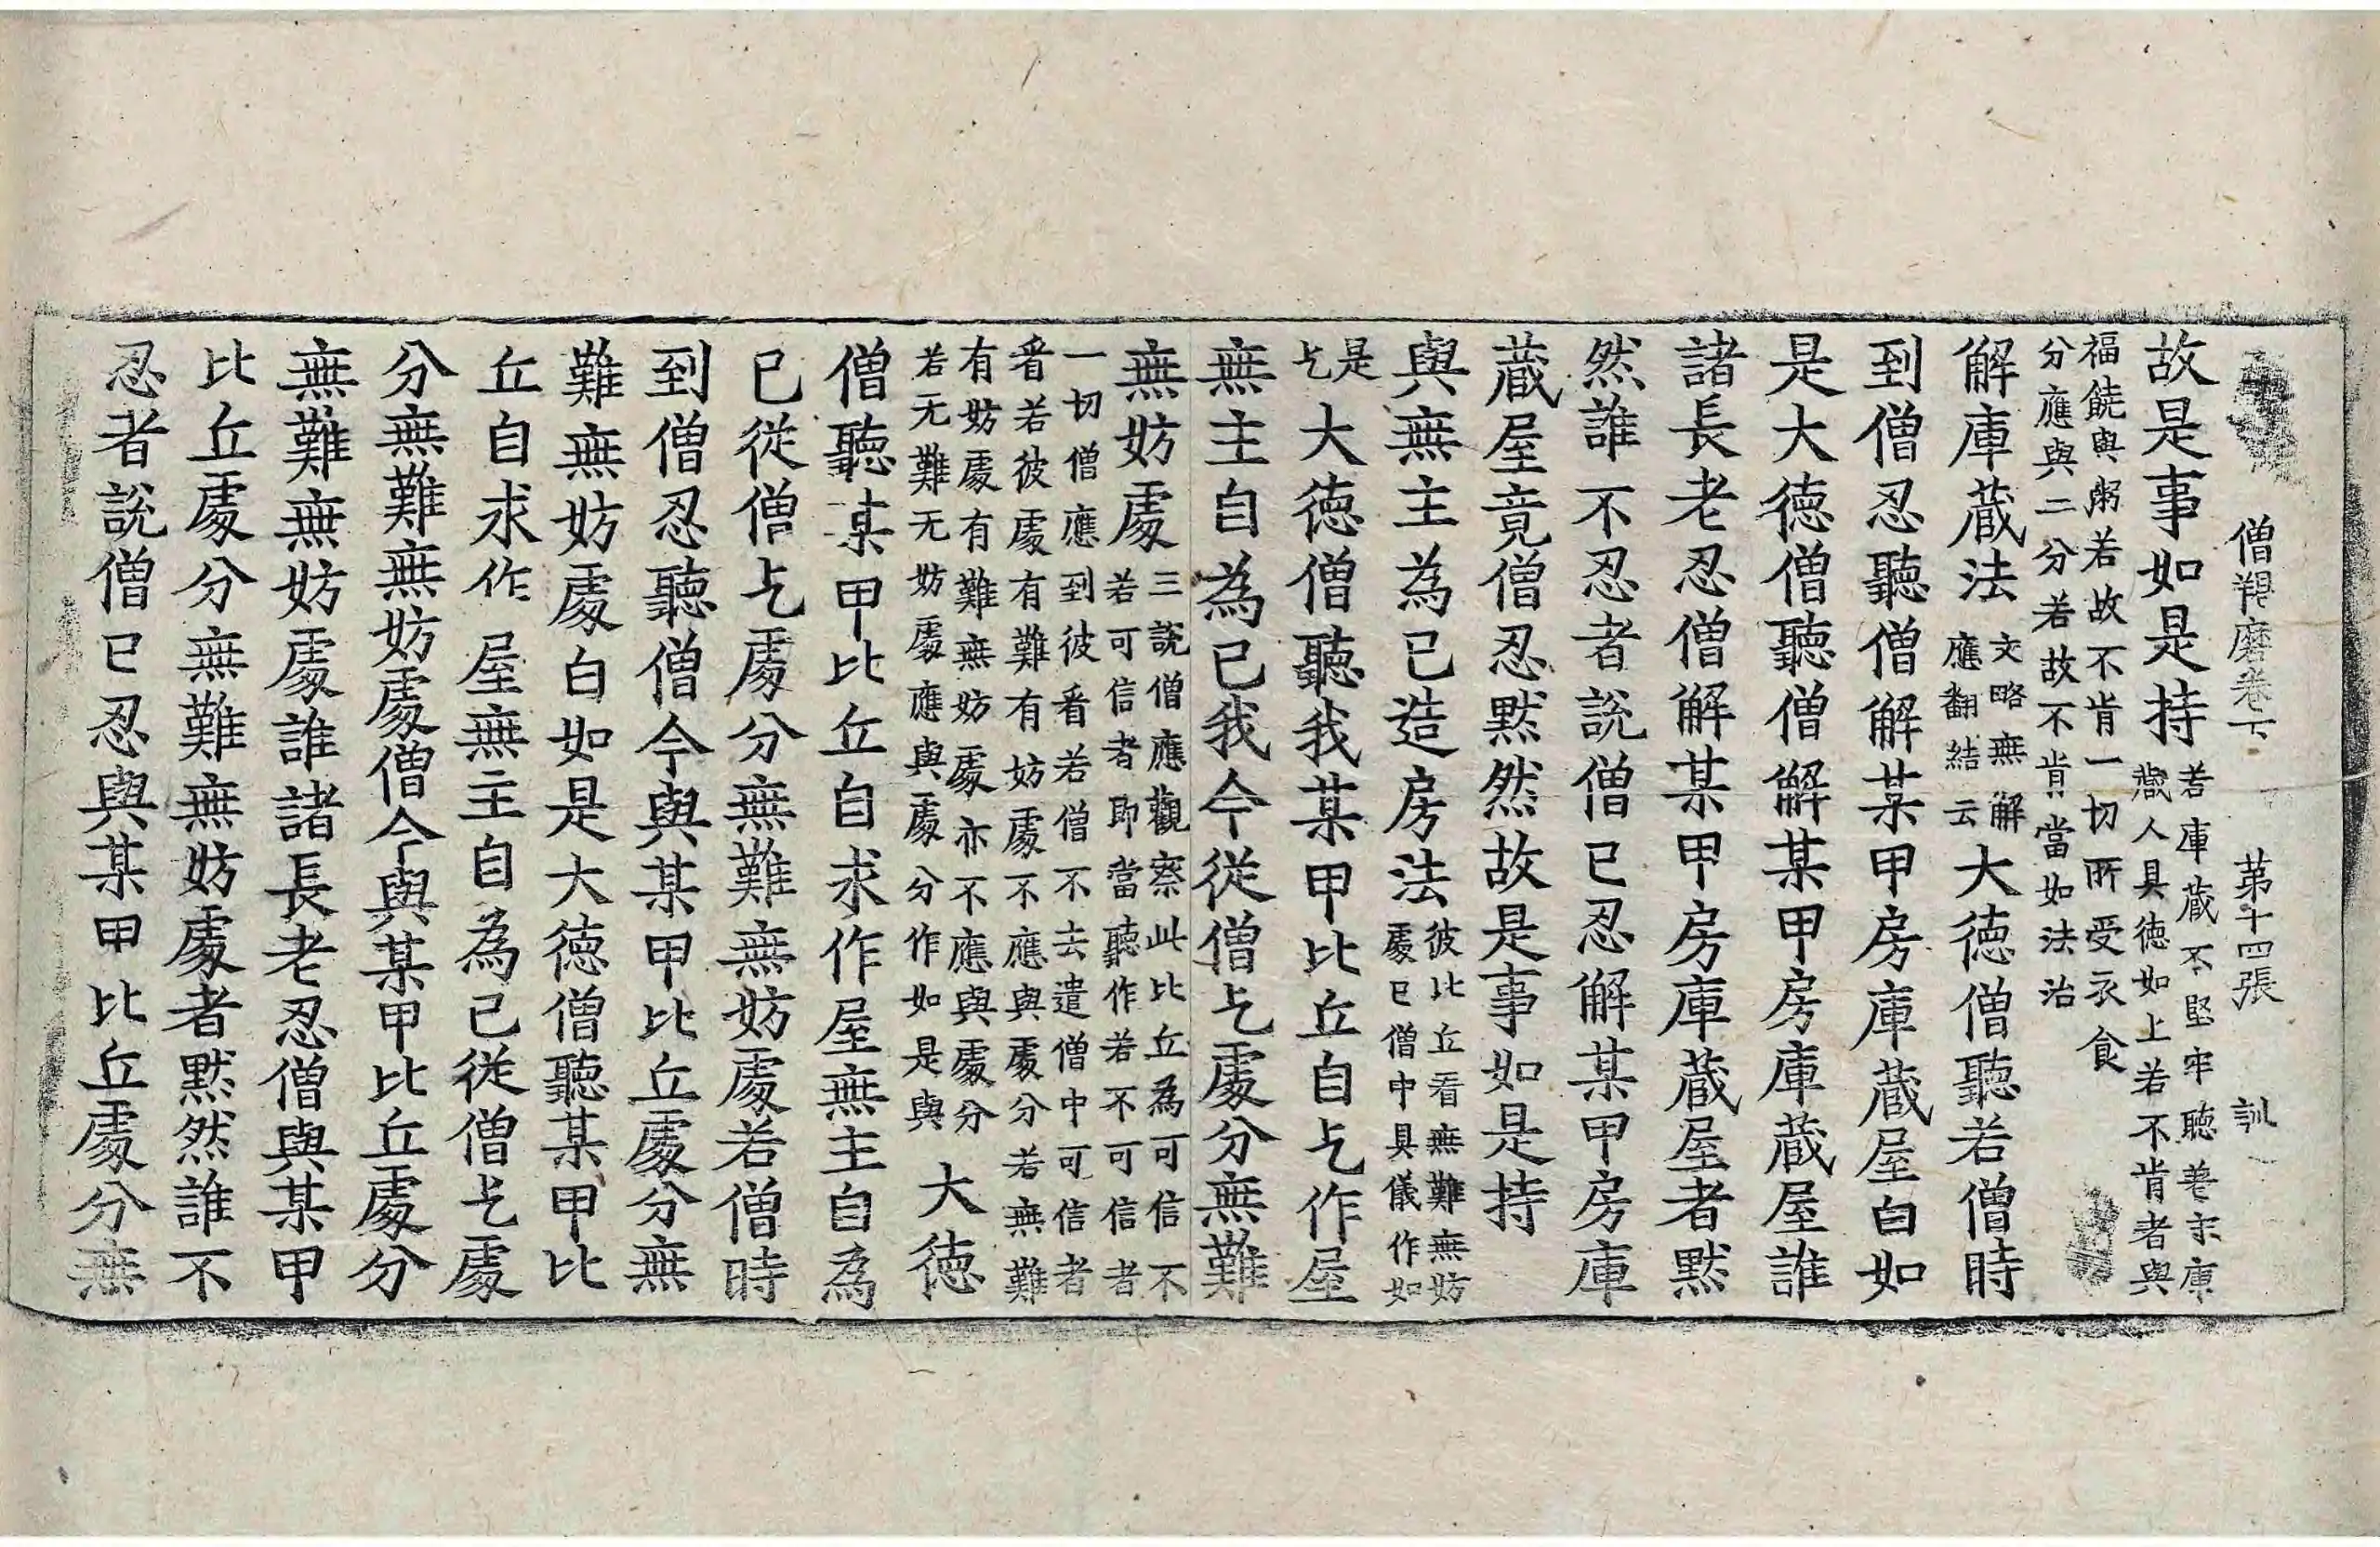 僧羯磨卷下 第十四張 訓
故是事如是持若庫藏不堅牢聽差守庫
藏人具德如上若不肯者與
福饒與粥若故不肯一切所受衣食
分應與二分若故不肯當如法治
解庫藏法文略無解
應翻結云大德僧聽若僧時
到僧忍聽僧解某甲房庫藏屋白如
是大德僧聽僧解某甲房庫藏屋誰
諸長老忍僧解某甲房庫藏屋者默
然誰不忍者說僧已忍解某甲房庫
藏屋竟僧忍默然故是事如是持
與無主為己造房法彼比丘看無難無妨
處已僧中具儀作如
是
乞大德僧聽我某甲比丘自乞作屋
無主自為己我今從僧乞處分無難
無妨處三說僧應觀察此比丘為可信不
若可信者即當聽作若不可信者
一切僧應到彼看若僧不去遣僧中可信者
看若彼處有難有妨處不應與處分若無難
有妨處有難無妨處亦不應與處分
若无難无妨處應與處分作如是與大德
僧聽某甲比丘自求作屋無主自為
已從僧乞處分無難無妨處若僧時
到僧忍聽僧今與某甲比丘處分無
難無妨處白如是大德僧聽某甲比
丘自求作屋無主自為己從僧乞處
分無難無妨處僧今與某甲比丘處分
無難無妨處誰諸長老忍僧與某甲
比丘處分無難無妨處者默然誰不
忍者說僧已忍與某甲比丘處分無